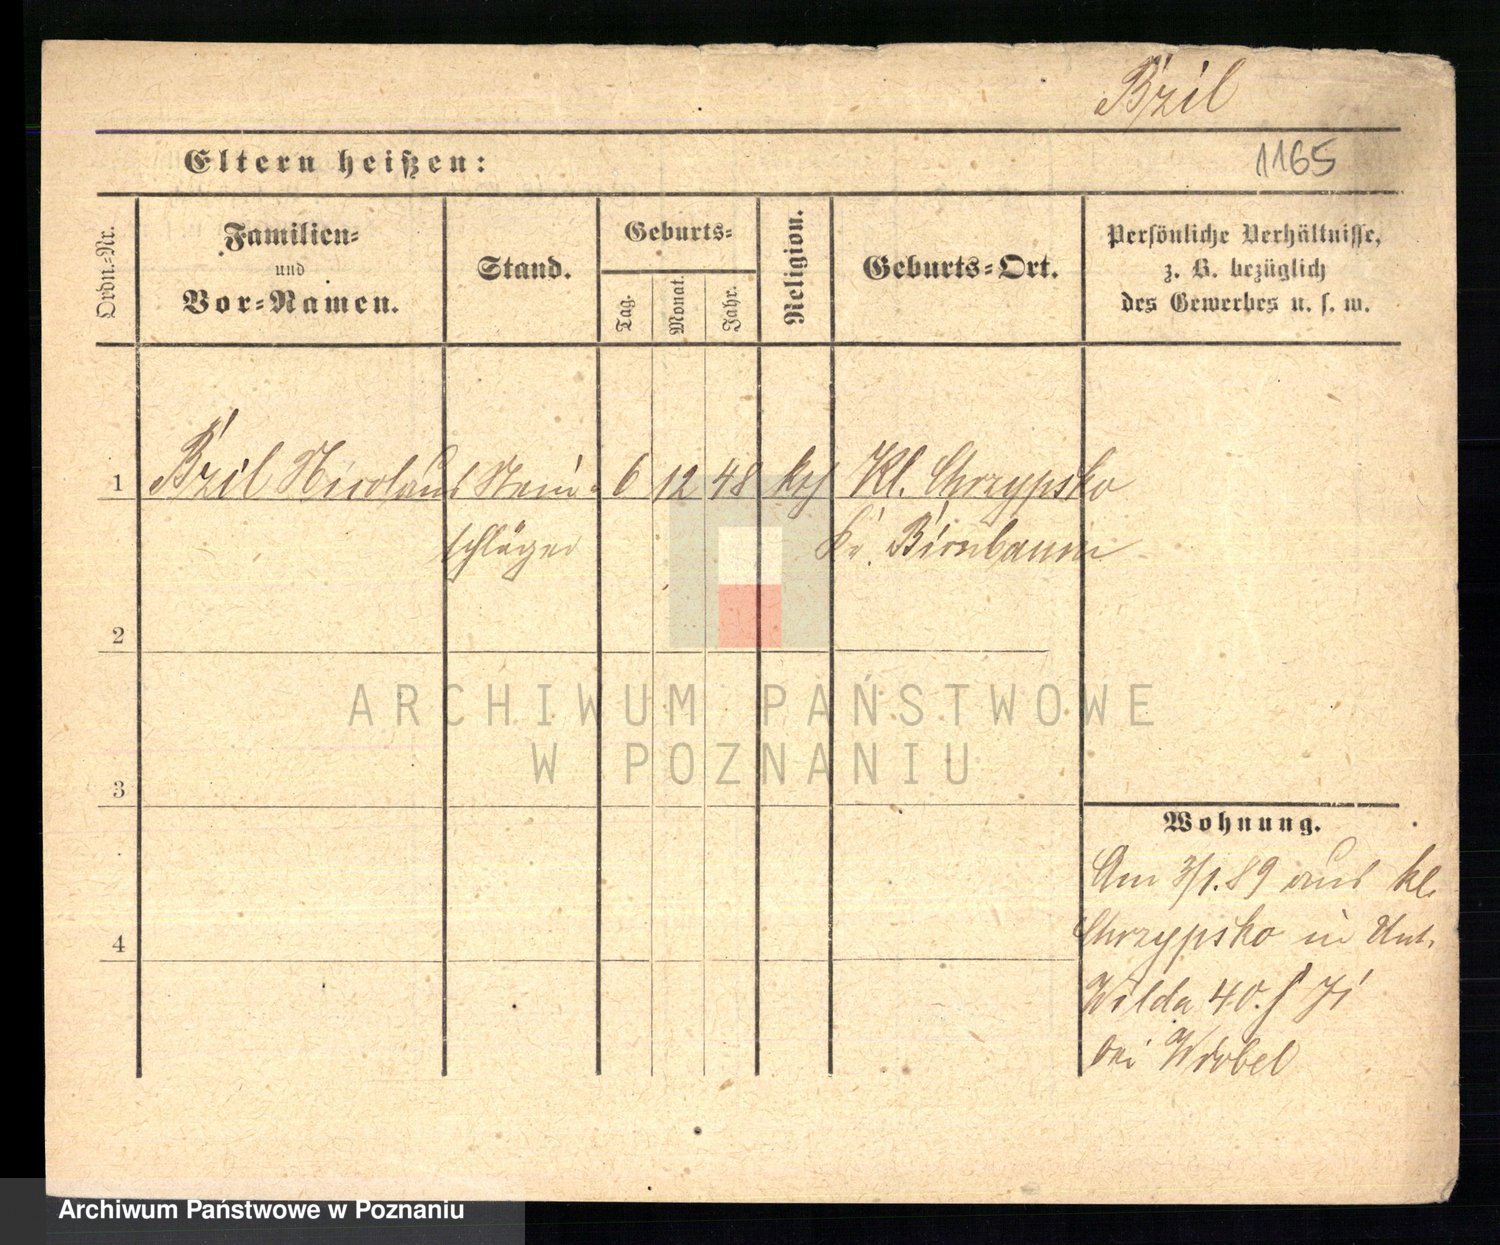 Bzil
Eltern heißen:
1165
Ordn.-Nr.
Familien-
und
Vor-Namen.
Stand.
Geburts-
Tag.
Monat.
Jahr.
Religion.
Geburts-Ort.
Persönliche Verhältnisse,
z. B. bezüglich
des Gewerbes u. s. w.
1 Bzil Nicolaus Stein- 6 12 48 kth Kl. Chrzypsko
schläger Kr. Birnbaum
2
ARCHIWUM PAŃSTWOWE
W POZNANIU
3
Wohnung.
Am 3/1.89 aus Kl.
Chrzypsko in Unt.
4
Wilda 40.
bei Wrobel
Archiwum Państwowe w Poznaniu